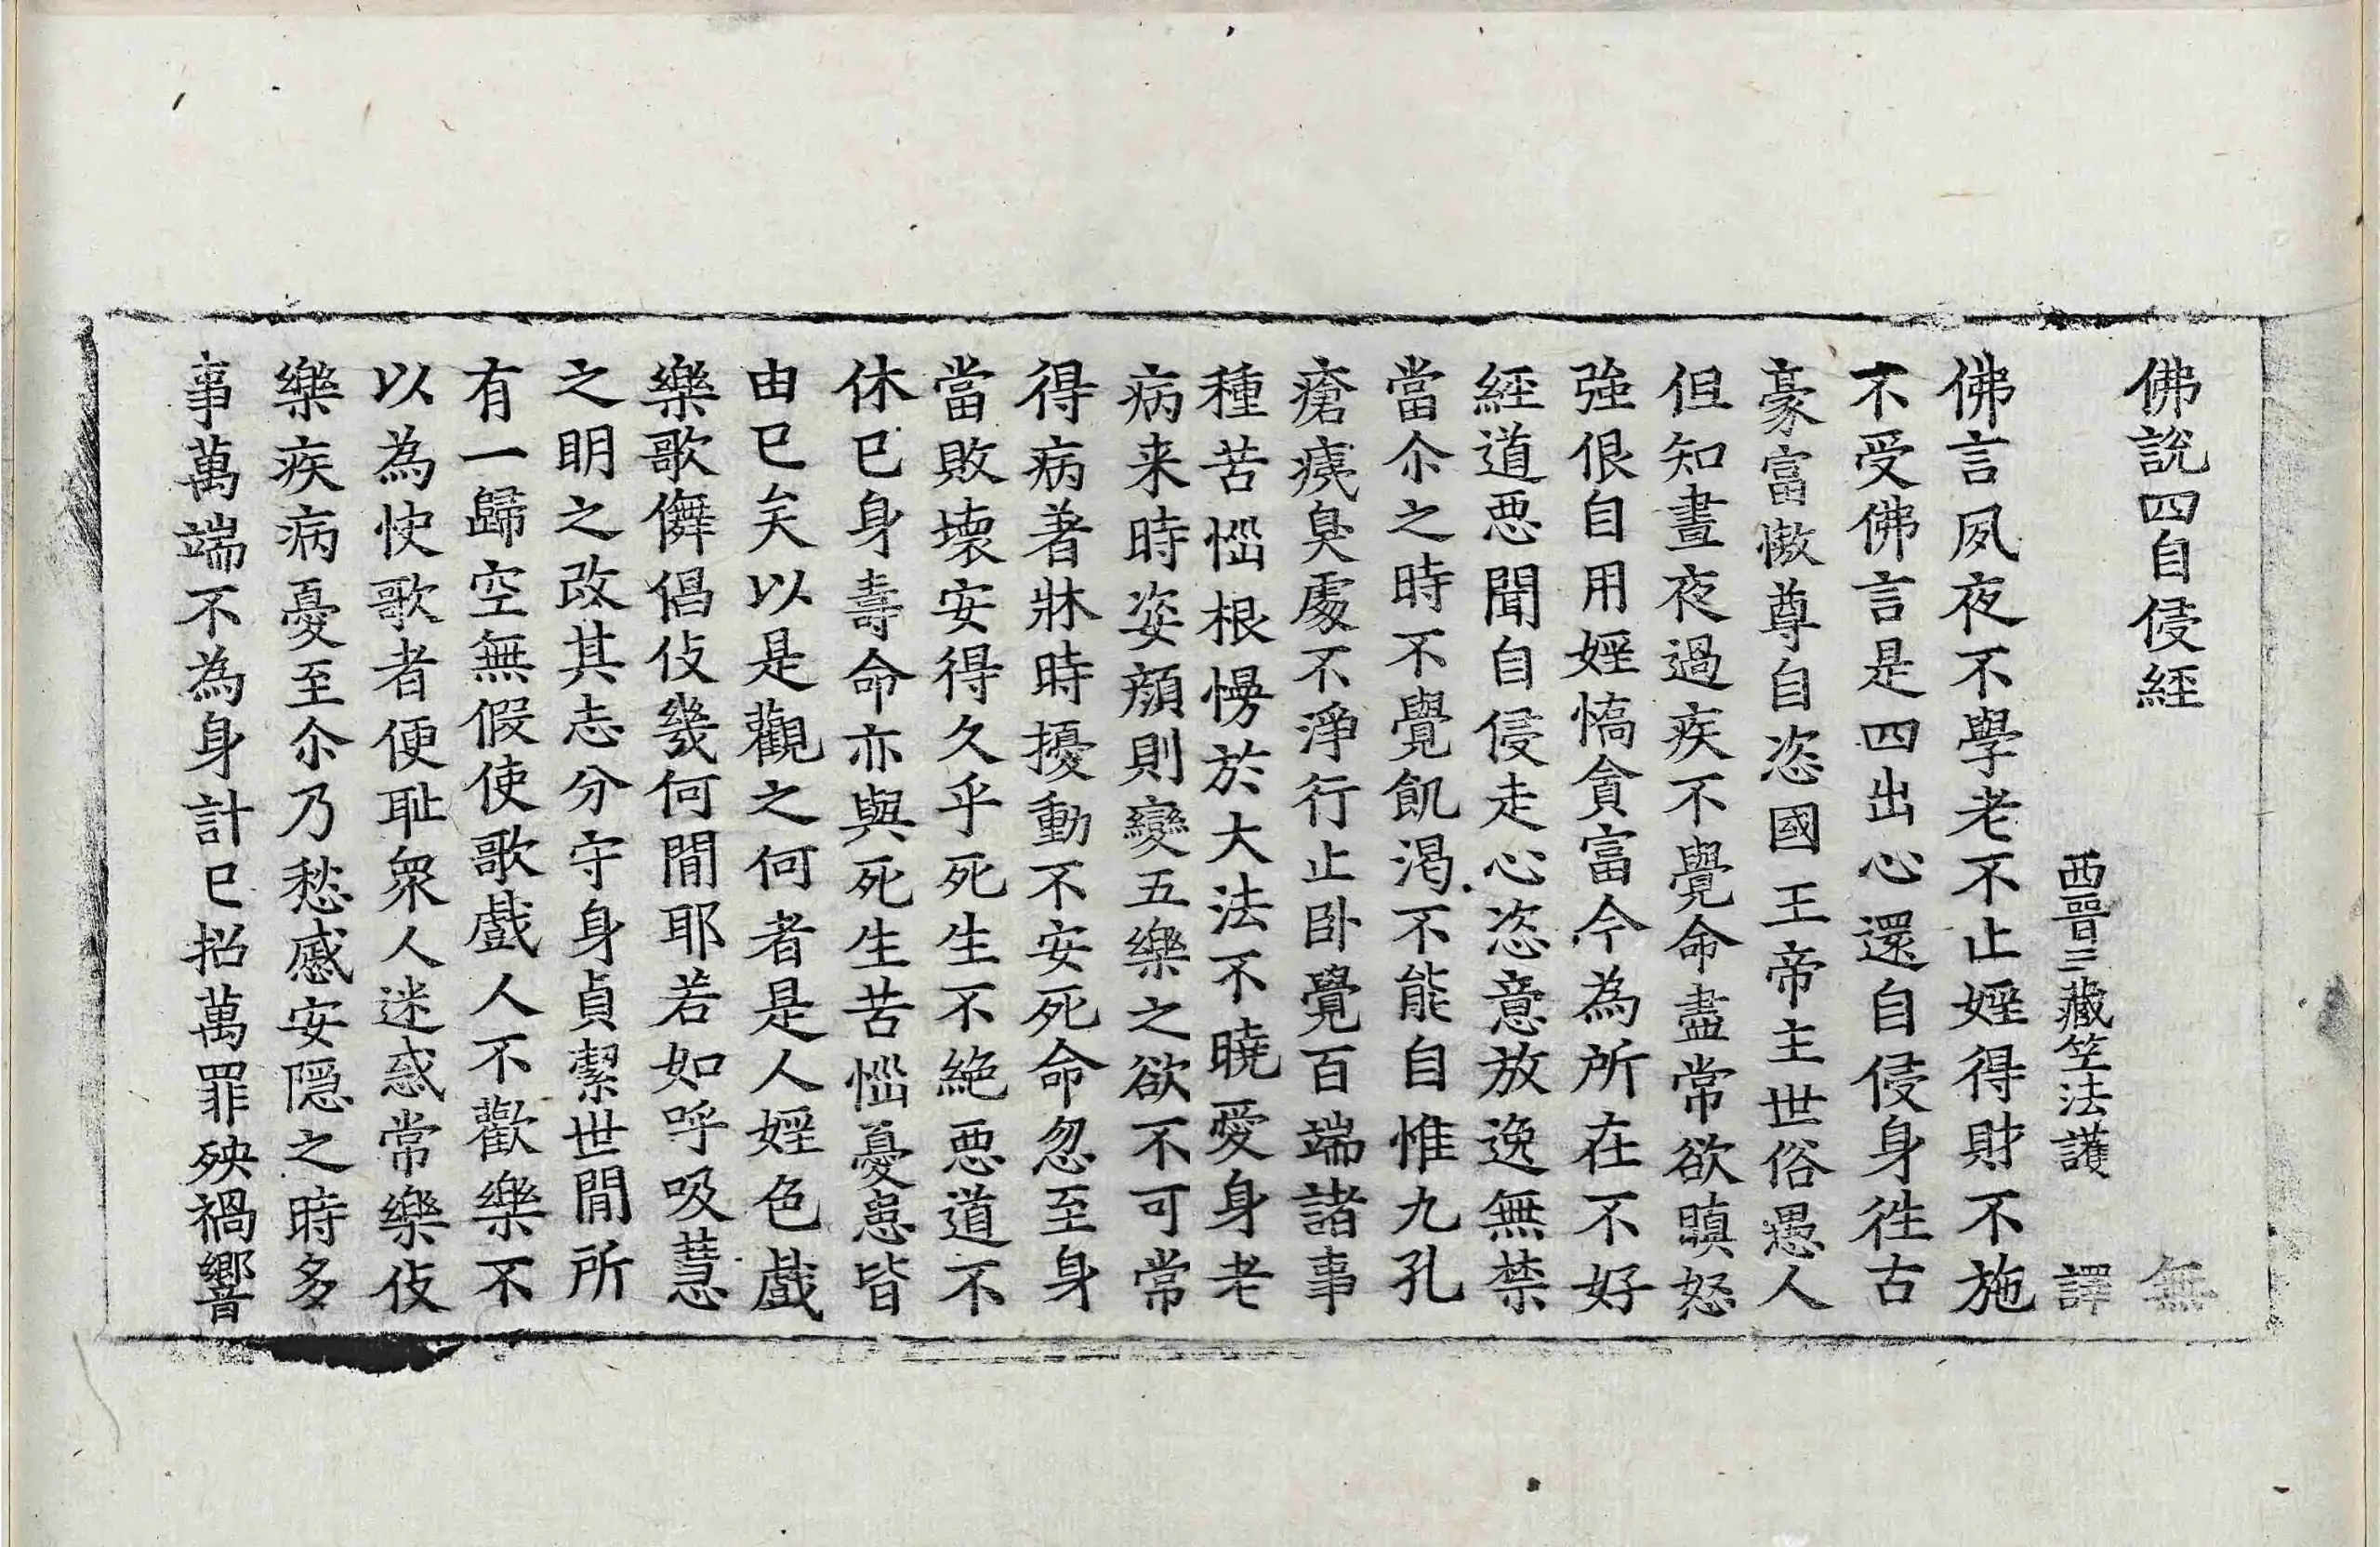 佛說四自侵經 無
西晉三藏竺法護 譯
佛言夙夜不學老不止婬得財不施
不受佛言是四出心還自侵身徃古
豪富慠尊自恣國王帝主世俗愚人
但知晝夜過疾不覺命盡常欲瞋怒
強佷自用婬㤍貪富今為所在不好
經道惡聞自侵走心恣意放逸無禁
當尒之時不覺飢渴不能自惟九孔
瘡痍臭處不淨行止卧覺百端諸事
種苦惱根慢於大法不曉愛身老
病来時姿顏則變五樂之欲不可常
得病著牀時擾動不安死命忽至身
當敗壞安得久乎死生不絶惡道不
休已身壽命亦與死生苦惱憂患皆
由已矣以是觀之何者是人婬色戲
樂歌儛倡伎幾何閒耶若如呼吸慧
之明之改其志分守身貞潔世閒所
有一歸空無假使歌戲人不歡樂不
以為快歌者便耻衆人迷惑常樂伎
樂疾病憂至尒乃愁慼安隱之時多
事萬端不為身計已招萬罪殃禍響